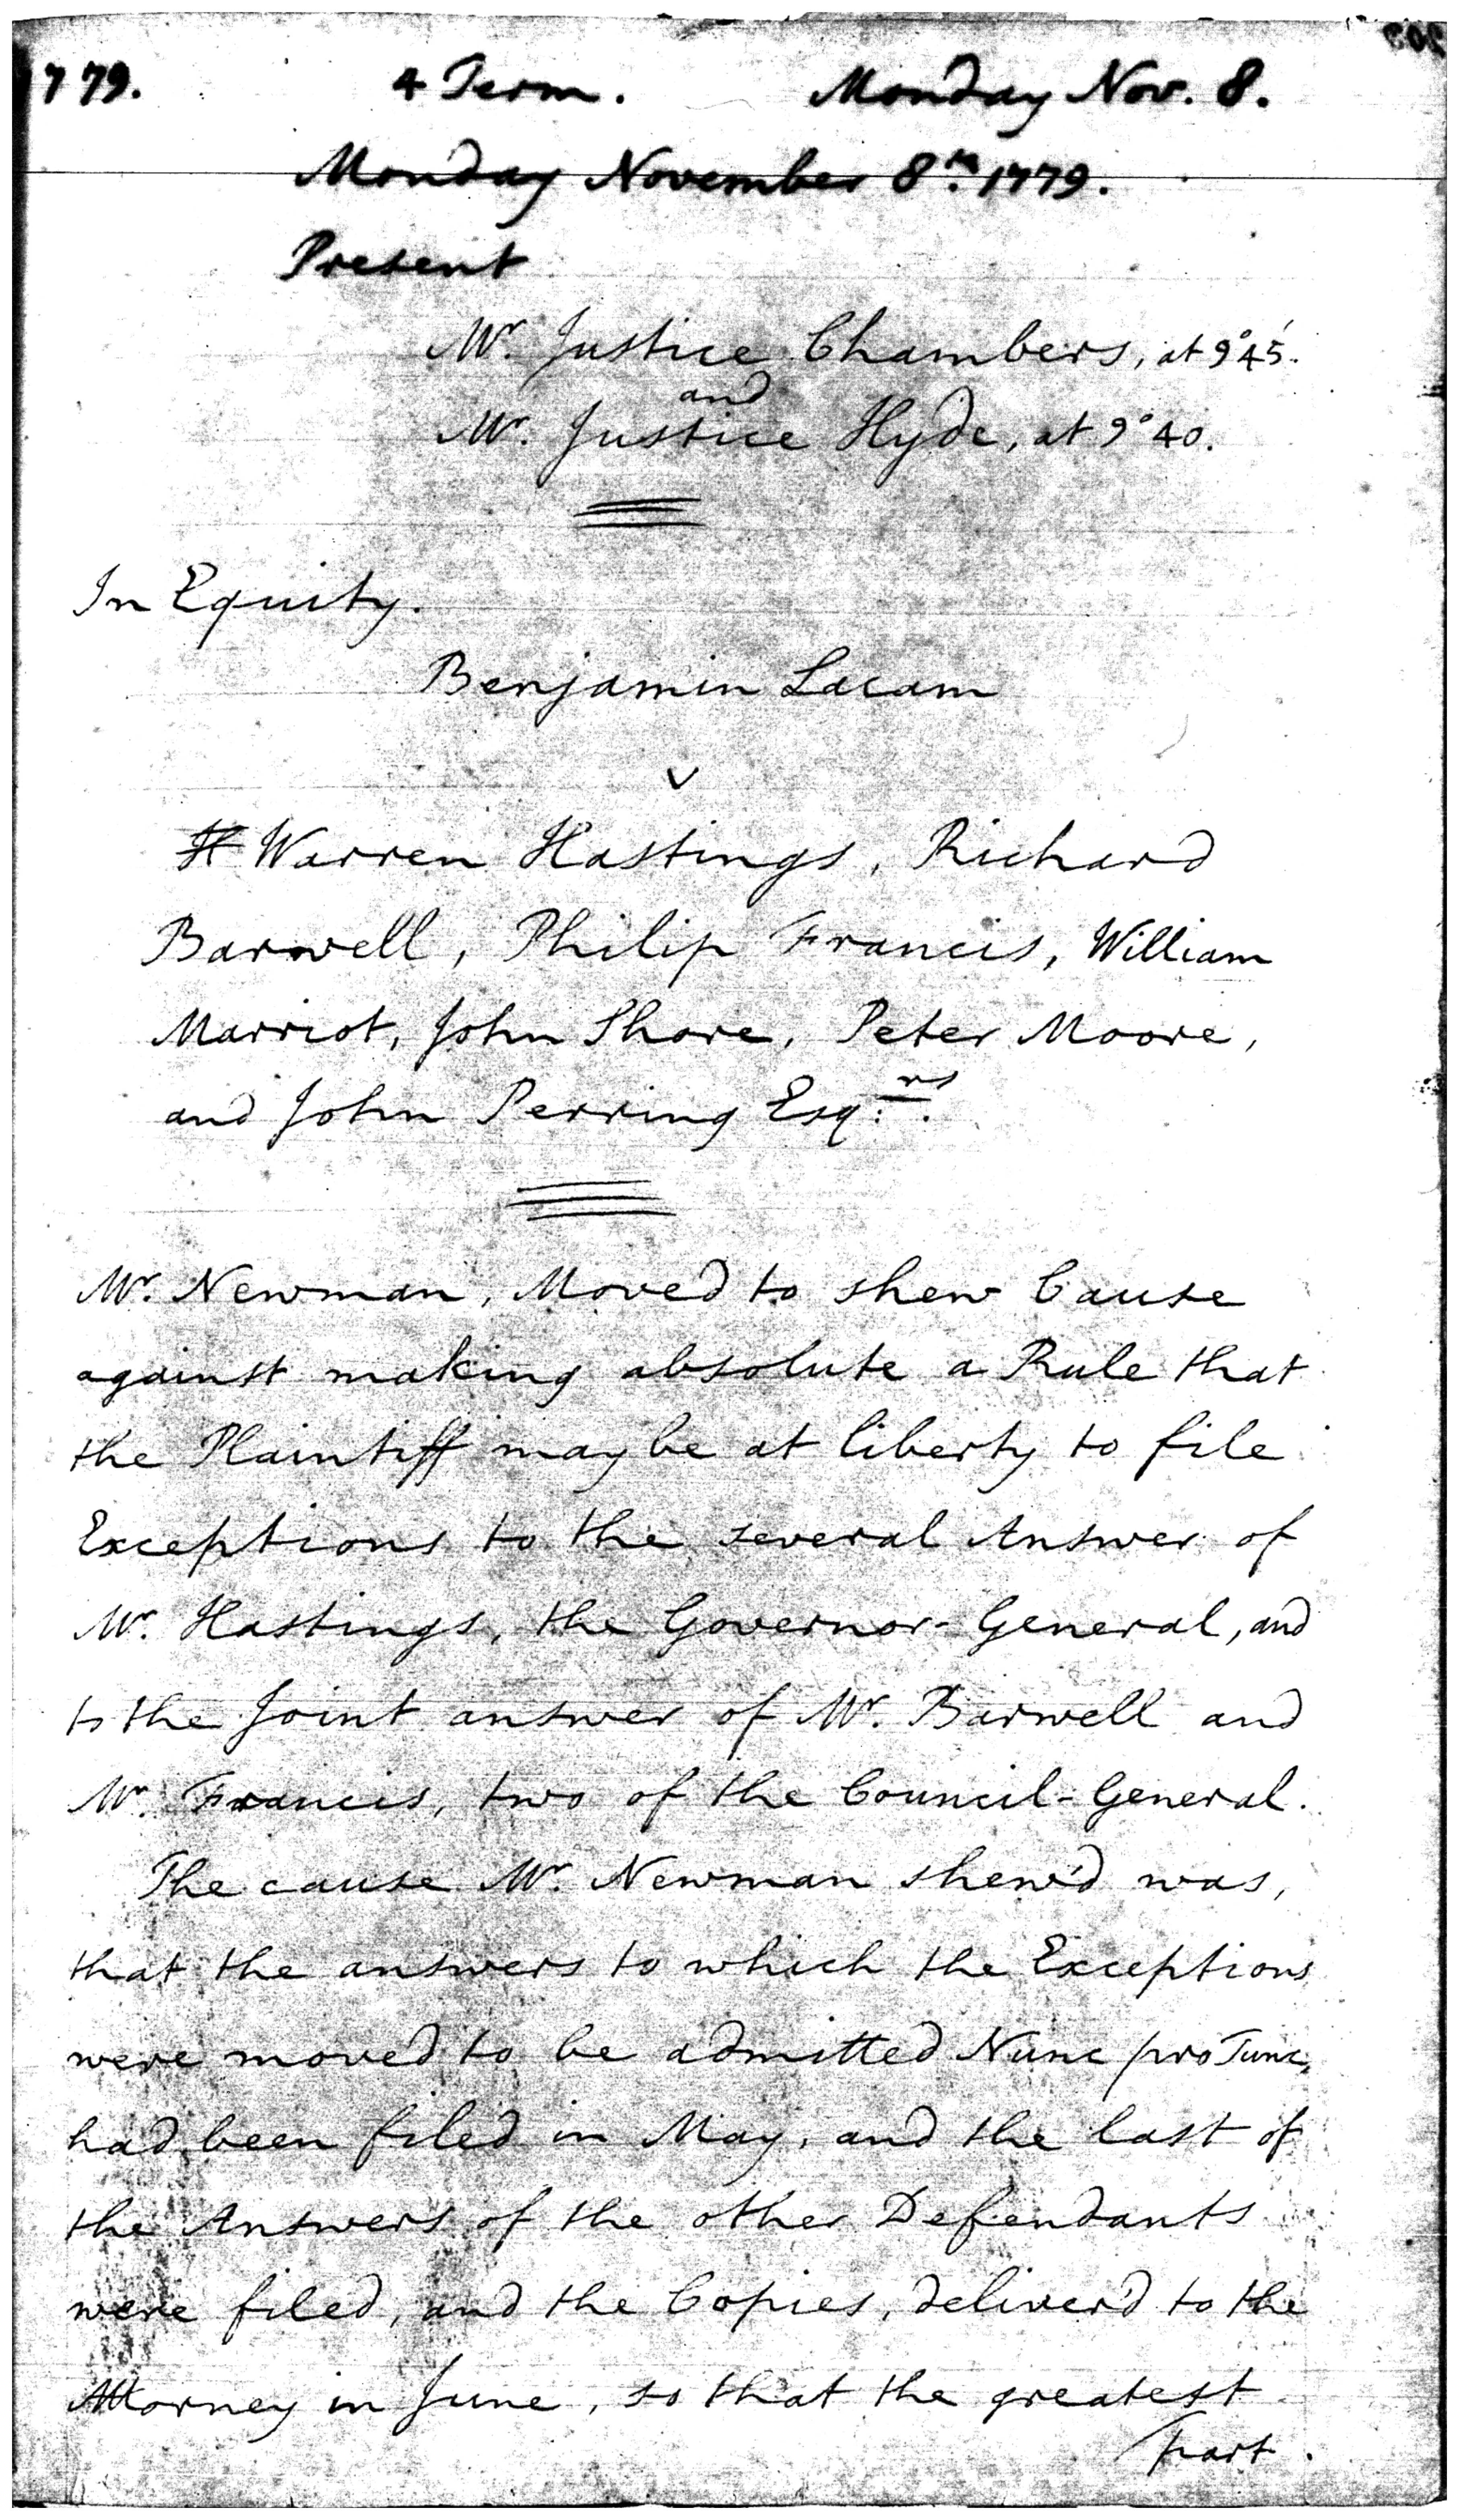 1779. 4 Term. Monday Nov. 8.
Monday November 8.th 1779.
Present
Mr. Justice Chambers, at 9°45'.
and
Mr. Justice Hyde, at 9°40.
In Equity.
Benjamin Lacam
v
H Warren Hastings, Richard
Barwell, Philip Francis, William
Marriot, John Shore, Peter Moore,
and John Perring Esq.rs.
Mr. Newman, Moved to shew Cause
against making absolute a Rule that
the Plaintiff may be at liberty to file
Exceptions to the several Answer of
Mr. Hastings, the Governor-General, and
to the Joint answer of Mr. Barwell and
Mr. Francis, two of the Council-General.
The cause Mr. Newman shew'd was,
that the answers to which the Exceptions
were moved to be admitted Nunc pro Tunc,
had been filed in May, and the last of
the Answers of the other Defendants
were filed, and the Copies, deliver'd to the
Attorney in June, so that the greatest
part.